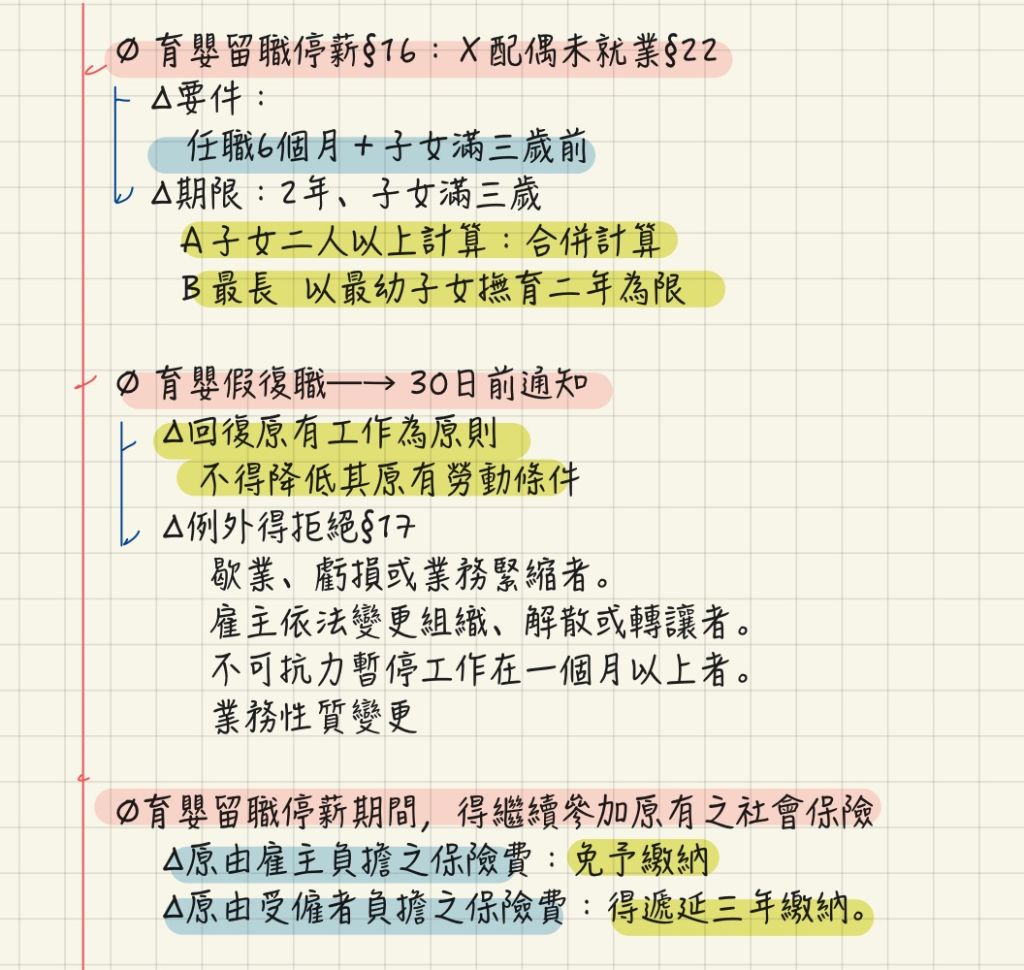 Ø 育嬰留職停薪§16：X配偶未就業§22
Δ要件：
任職6個月＋子女滿三歲前
Δ期限：2年、子女滿三歲
A 子女二人以上計算：合併計算
B 最長 以最幼子女撫育二年為限
Ø 育嬰假復職—→ 30日前通知
Δ回復原有工作為原則
不得降低其原有勞動條件
Δ例外得拒絕§17
歇業、虧損或業務緊縮者。
雇主依法變更組織、解散或轉讓者。
不可抗力暫停工作在一個月以上者。
業務性質變更
Ø育嬰留職停薪期間，得繼續參加原有之社會保險
Δ原由雇主負擔之保險費：免予繳納
Δ原由受僱者負擔之保險費：得遞延三年繳納。